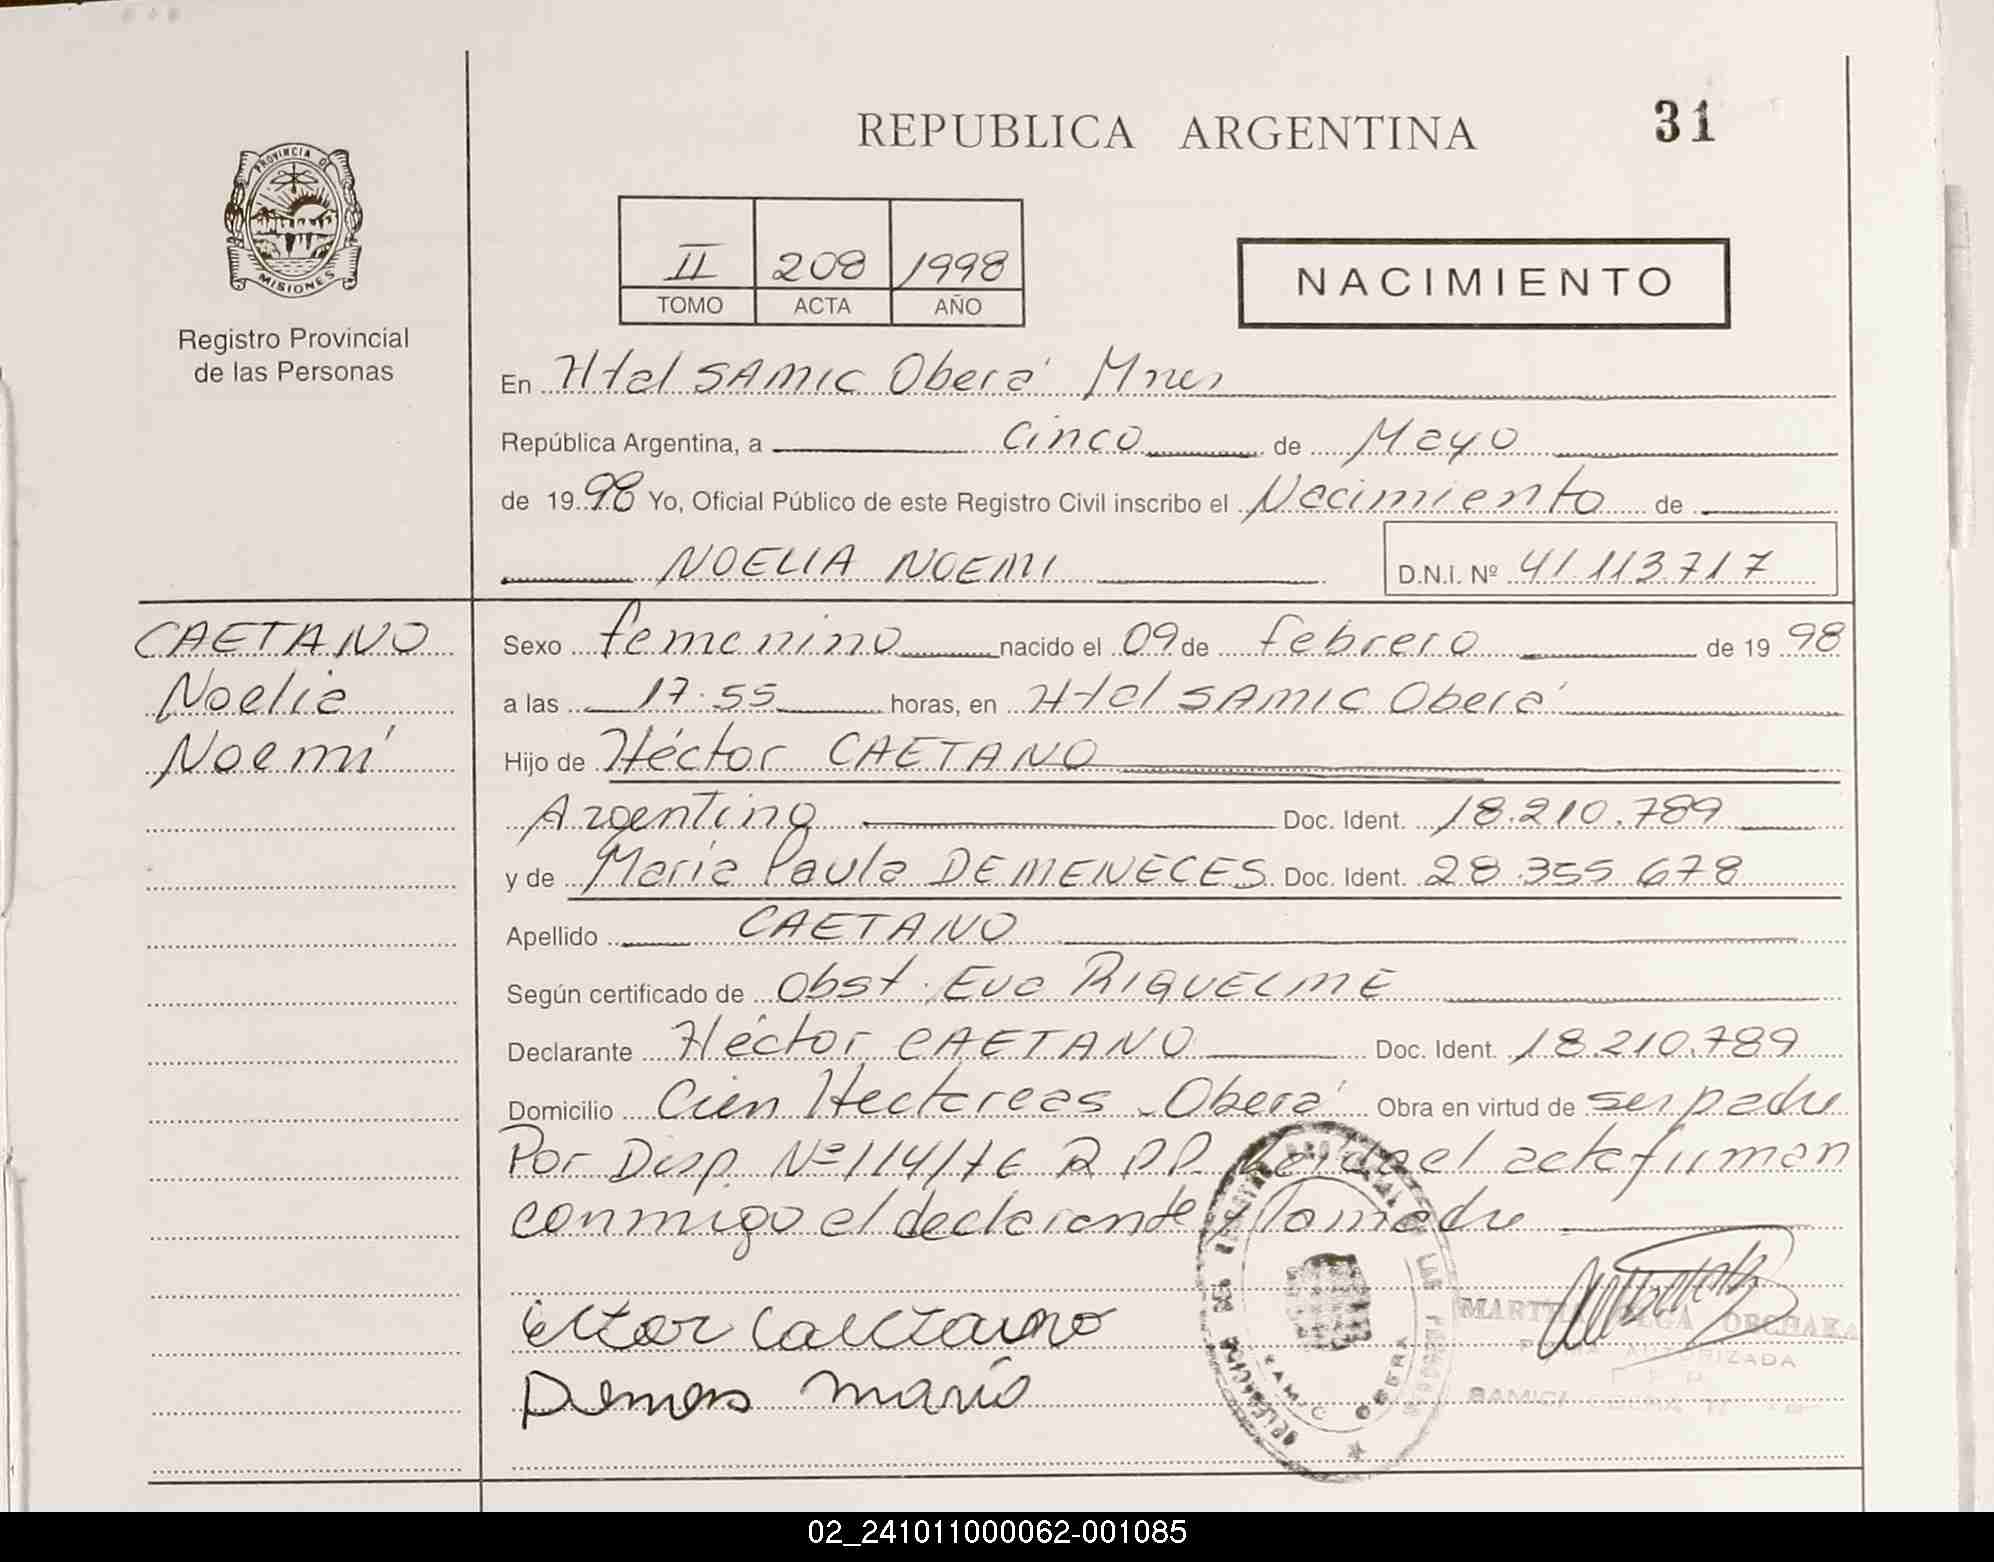 REPUBLICA ARGENTINA
31
PROVINCIA DE
MISIONES
Registro Provincial
de las Personas
II 208 1998
TOMO ACTA AÑO
NACIMIENTO
En Htal SAMIC Oberá Mnes
República Argentina, a cinco de Mayo
de 1998 Yo, Oficial Público de este Registro Civil inscribo el Nacimiento de
NOELIA NOEMI D.N.I. Nº 41.113.717
CAETANO
Noelia
Noemí
Sexo femenino nacido el 09 de febrero de 1998
a las 17.55 horas, en Htal SAMIC Oberá
Hijo de Héctor CAETANO
Argentino Doc. Ident. 18.210.789
y de María Paula DEMENECES Doc. Ident. 28.355.678
Apellido CAETANO
Según certificado de Obst. Eva RIQUELME
Declarante Héctor CAETANO Doc. Ident. 18.210.789
Domicilio Cien Hectareas Oberá Obra en virtud de ser padre
Por Disp. Nº 114/76 R.P.P. Leída el acta firman
conmigo el declarante y la madre
Caetano
SAMIC OBERA
MARTHA
AUTORIZADA
02_241011000062-001085